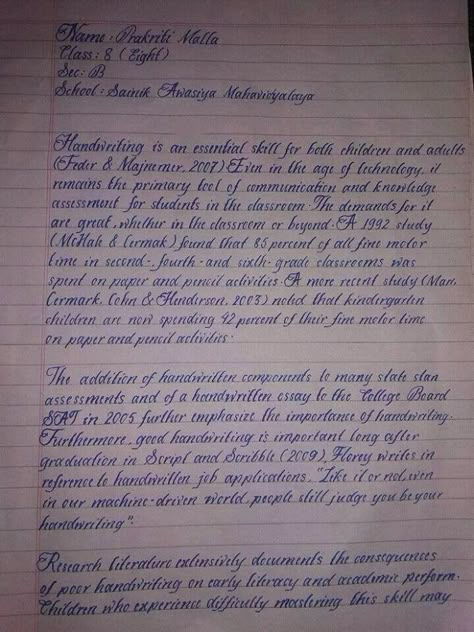 Name : Prakriti Malla
Class : 8 ( Eight )
Sec : B
School : Sainik Awasiya Mahavidyalaya
Handwriting is an essential skill for both children and adults
(Feder & Majnemer, 2007) Even in the age of technology, it
remains the primary tool of communication and knowledge
assessment for students in the classroom. The demands for it
are great, whether in the classroom or beyond. A 1992 study
(McHale & Cermak) found that 85 percent of all fine motor
time in second-, fourth- and sixth-grade classrooms was
spent on paper and pencil activities. A more recent study (Marr,
Cermark, Cohn & Henderson, 2003) noted that kindergarten
children are now spending 42 percent of their fine motor time
on paper and pencil activities.
The addition of handwritten components to many state stan
assessments and of a handwritten essay to the College Board
SAT in 2005 further emphasize the importance of handwriting.
Furthermore, good handwriting is important long after
graduation in Script and Scribble (2009), Florey writes in
reference to handwritten job applications, "Like it or not, even
in our machine-driven world, people still judge you by your
handwriting".
Research literature extensively documents the consequences
of poor handwriting on early literacy and academic perform.
Children who experience difficulty mastering this skill may